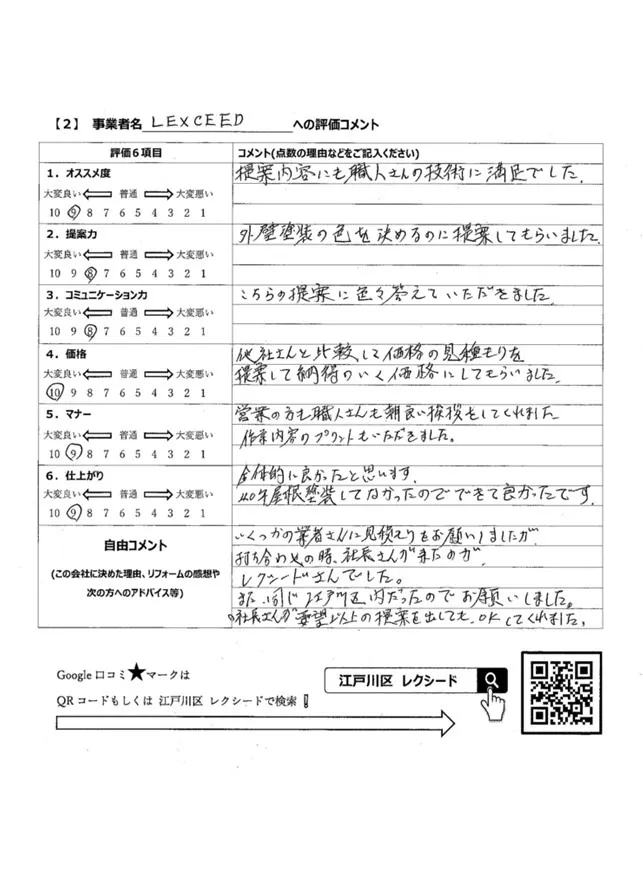 【2】 事業者名 LEXCEED への評価コメント
評価6項目 コメント(点数の理由などをご記入ください)
1．オススメ度
大変良い 普通 大変悪い
10 9 8 7 6 5 4 3 2 1
提案内容にも職人さんの技術に満足でした。
2．提案力
大変良い 普通 大変悪い
10 9 8 7 6 5 4 3 2 1
外壁塗装の色を決めるのに提案してもらいました。
3．コミュニケーション力
大変良い 普通 大変悪い
10 9 8 7 6 5 4 3 2 1
こちらの提案に色々答えていただきました。
4．価格
大変良い 普通 大変悪い
10 9 8 7 6 5 4 3 2 1
他社さんと比較して価格の見積もりを
提案して納得のいく価格にしてもらいました。
5．マナー
大変良い 普通 大変悪い
10 9 8 7 6 5 4 3 2 1
営業の方も職人さんも朝良い挨拶をしてくれました
作業内容のプリントもいただきました。
6．仕上がり
大変良い 普通 大変悪い
10 9 8 7 6 5 4 3 2 1
全体的に良かったと思います。
40年屋根塗装してなかったのでできて良かったです。
自由コメント
(この会社に決めた理由、リフォームの感想や
次の方へのアドバイス等)
いくつかの業者さんに見積もりをお願いしましたが、
打ち合わせの時、社長さんが来たのが、
レクシードさんでした。
また、同じ江戸川区内だったのでお願いしました。
社長さんが要望以上の提案を出しても、OKしてくれました。
Google口コミ★マークは
QRコードもしくは 江戸川区 レクシードで検索！
江戸川区 レクシード